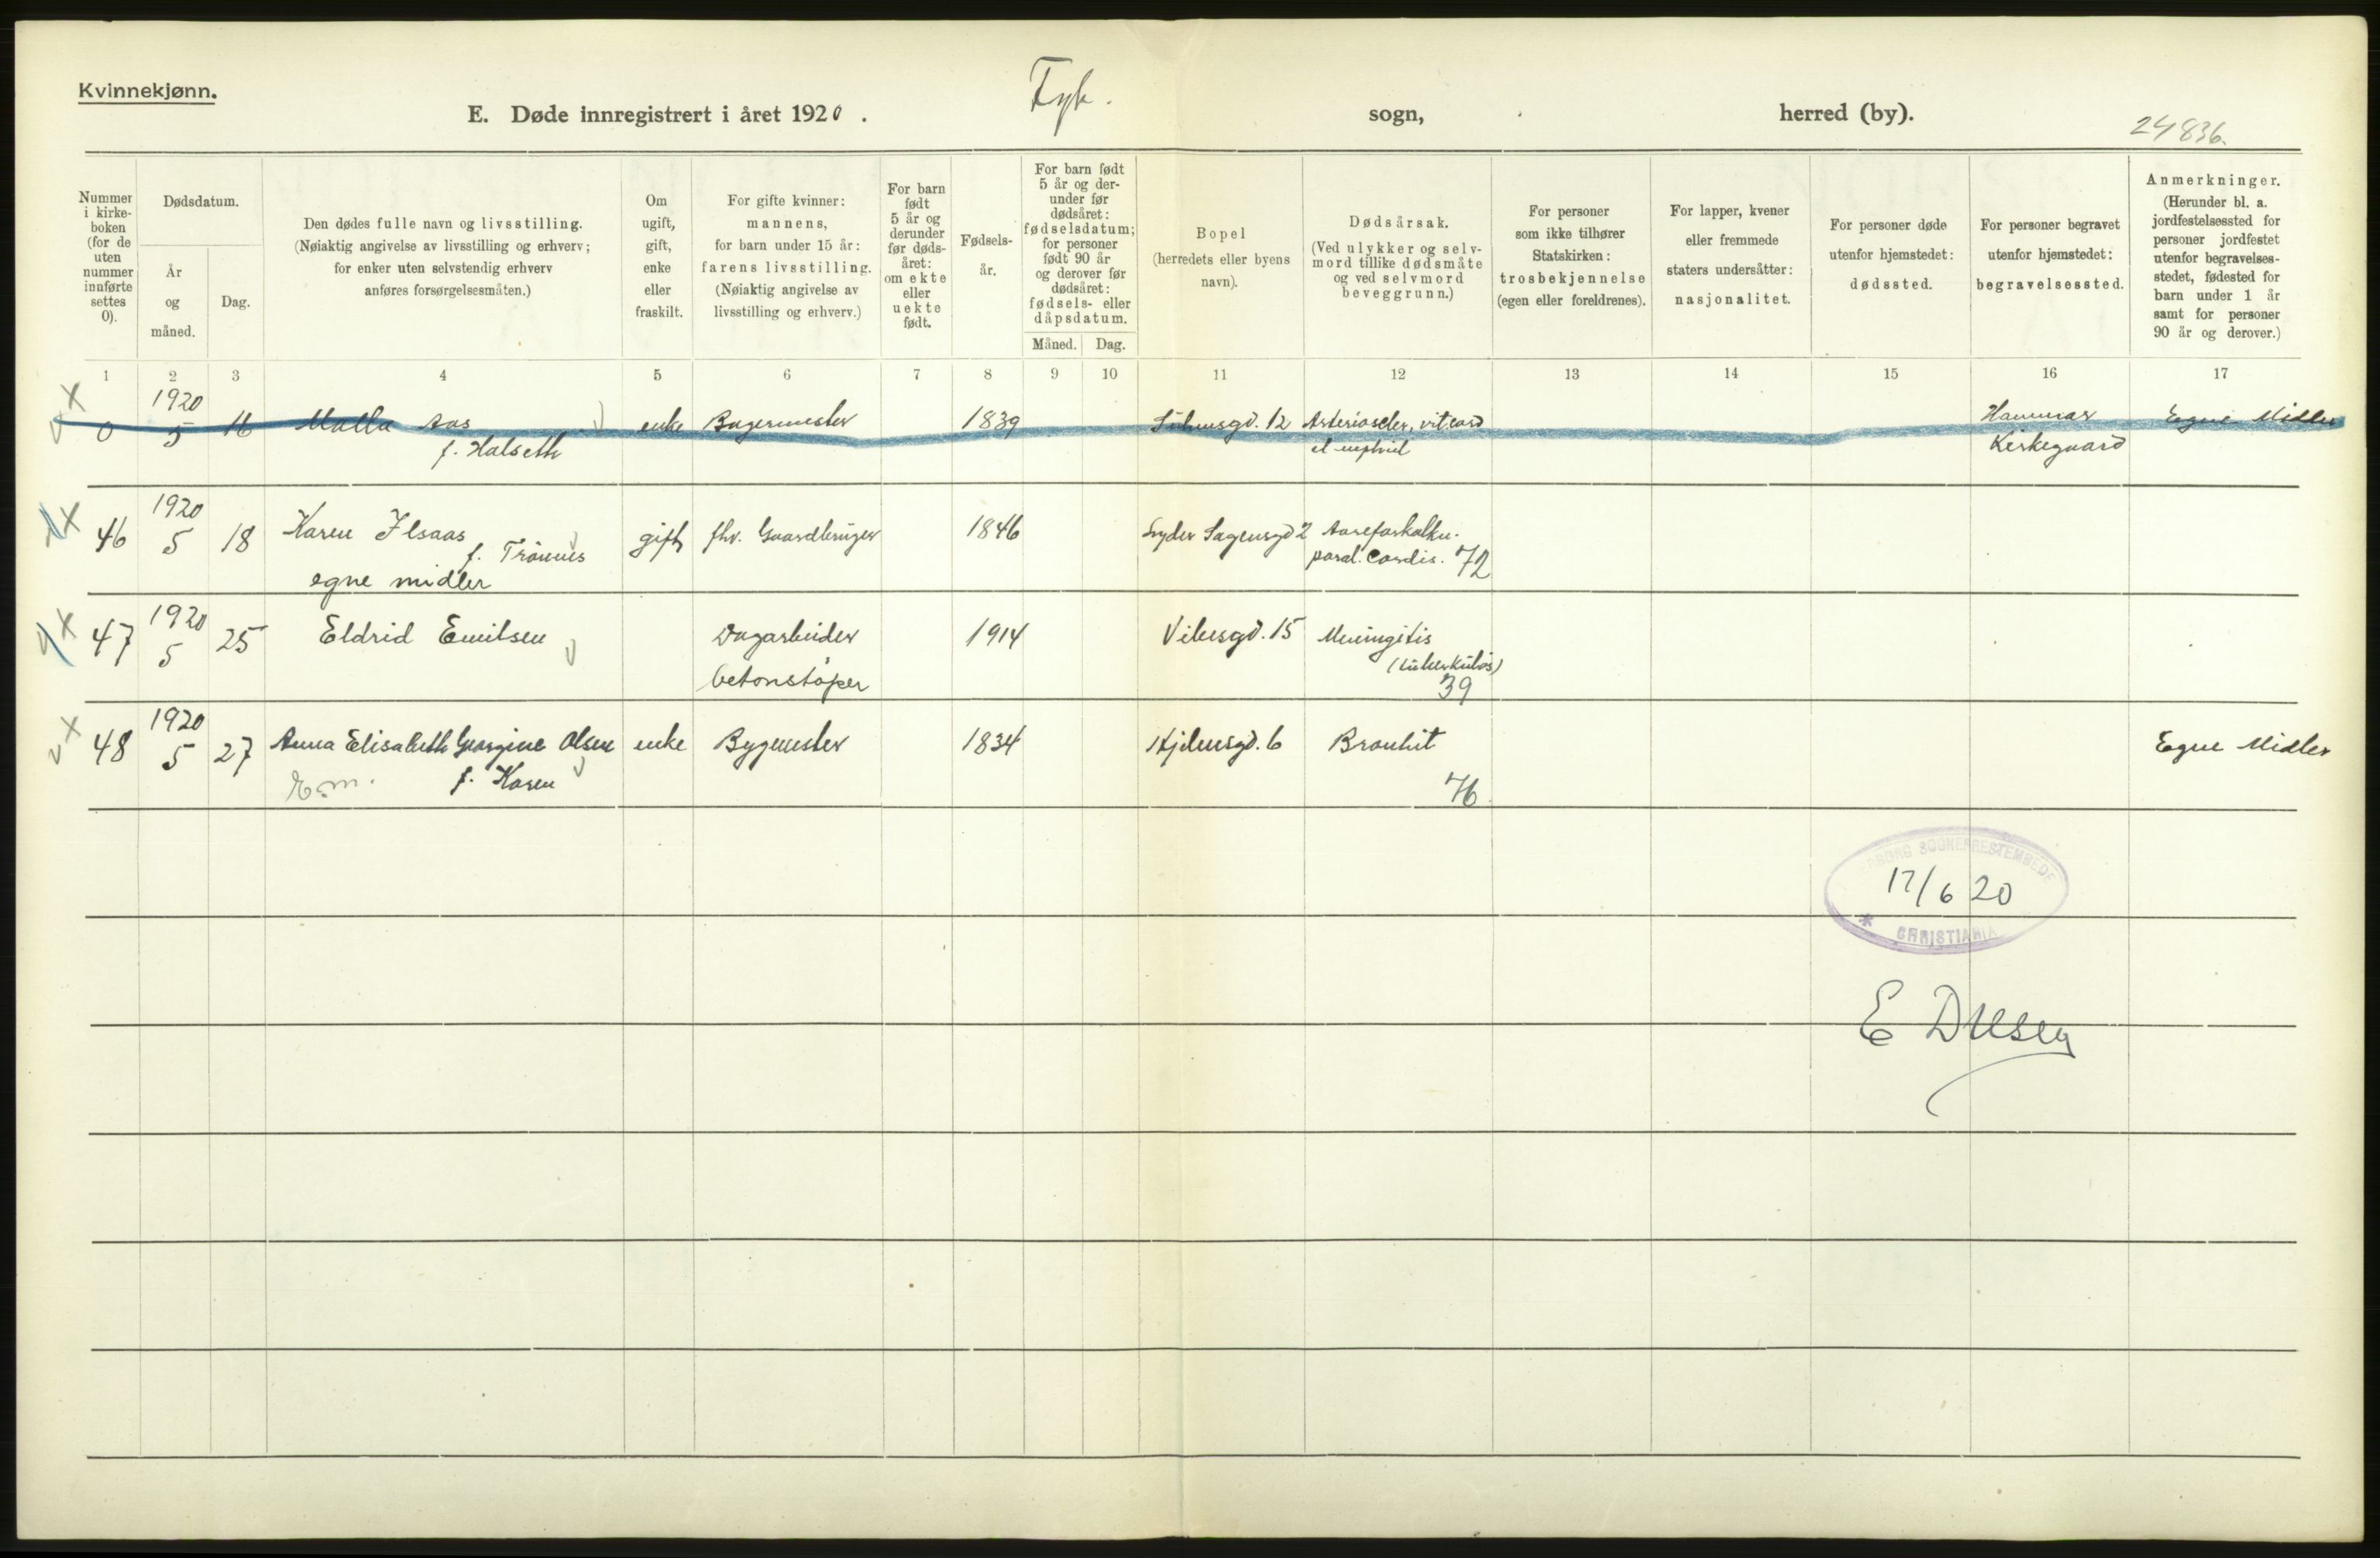 Kvinnekjønn.
E. Døde innregistrert i året 1920. Fyk. sogn, herred (by).
24836.
Nummer i kirke-boken (for de uten nummer innførte settes 0).
Dødsdatum.
År og måned.
Dag.
Den dødes fulle navn og livsstilling.
(Nøiaktig angivelse av livsstilling og erhverv;
for enker uten selvstendig erhverv
anføres forsørgelsesmåten.)
Om ugift, gift, enke eller fraskilt.
For gifte kvinner:
mannens,
for barn under 15 år:
farens livsstilling.
(Nøiaktig angivelse av
livsstilling og erhverv.)
For barn født 5 år og derunder før døds-året: om ekte eller uekte født.
Fødsels-år.
For barn født
5 år og der-
under før
dødsåret:
fødselsdatum;
for personer
født 90 år
og derover før
dødsåret:
fødsels- eller
dåpsdatum.
Måned.
Dag.
Bopel
(herredets eller byens
navn).
Dødsårsak.
(Ved ulykker og selv-
mord tillike dødsmåte
og ved selvmord
beveggrunn.)
For personer
som ikke tilhører
Statskirken:
trosbekjennelse
(egen eller foreldrenes).
For lapper, kvener
eller fremmede
staters undersåtter:
nasjonalitet.
For personer døde
utenfor hjemstedet:
dødssted.
For personer begravet
utenfor hjemstedet:
begravelsessted.
Anmerkninger.
(Herunder bl. a.
jordfestelsessted for
personer jordfestet
utenfor begravelses-
stedet, fødested for
barn under 1 år
samt for personer
90 år og derover.)
1 2 3 4 5 6 7 8 9 10 11 12 13 14 15 16 17
1920
0 5 16 Malla Aas enke Bagermester 1839 12 Hammar Egne Midler
f. Halseth Kirkegaard
1920
46 5 18 Karen Ilsaas gift fhv. Gaardbruger 1846 Lyder Sagensgd 2 Aareforkalkn.
f. Trönnes paral. cordis. 72
egne midler
1920
47 5 25 Eldrid Emilsen Dagarbeider 1914 Vibesgd. 15 Meningitis
(tuberkuløs)
betonstøper 39
1920
48 5 27 Anna Elisabeth Georgine Olsen enke Bygmester 1834 Hjelmsgd. 6 Bronkit Egne Midler
E.m. f. Karen 76
SOGNEPRESTEMBEDE
17/6 20
CHRISTIANIA